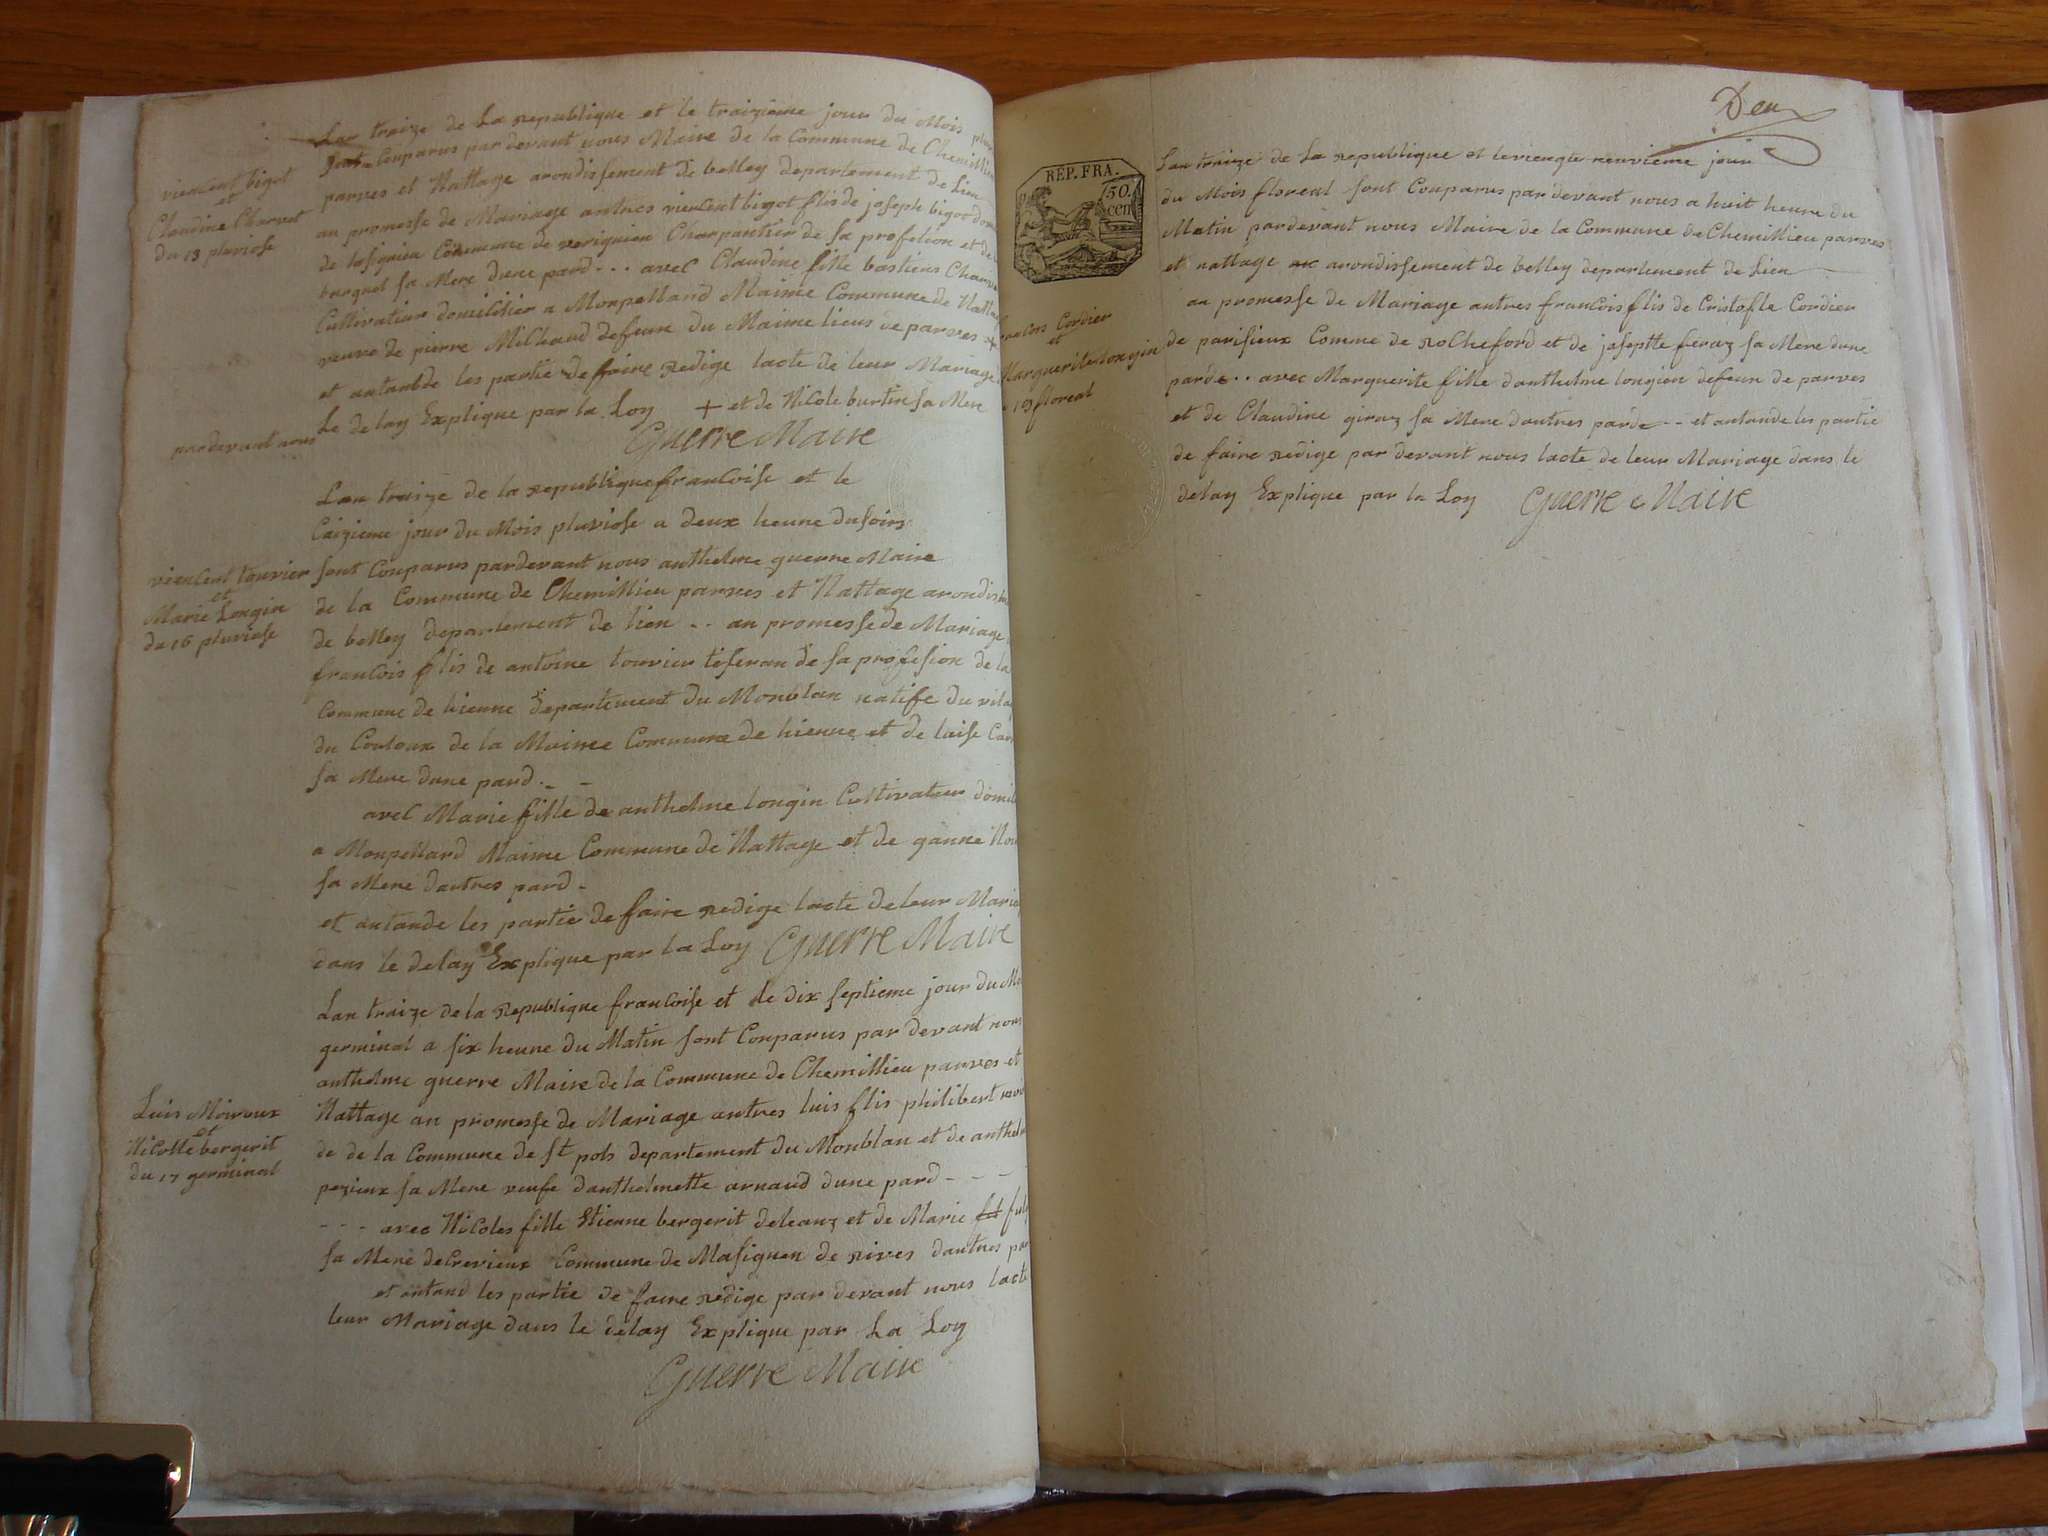 Lan traize de La republique et le traizieme jour du Mois
sont Conparus par devant nous Maire de la Commune de Chemillieu
parves et Nattage arondissement de belley departement de Lien
an promesse de Mariage antres viencent bigot flis de joseph bigot
de lasignieu Commune de Charpantier de sa profesion et de
sa Mere dune pard - - - avec Claudine fille bastiens
Cultivateur domicilier a Monpellard Maime Commune de
veuve de pierre Milliaud defeun du Maime lieus de parves +
et antande les partie de faire redige lacte de leur Mariage
Le delay Explique par la Loy + et de Nicole burtin sa Mere
Guerre Maire
viencent bigot
et
Claudine Charvet
du 13 pluviose
pardevant nous
Lan traize de la republique francoise et le
Caizieme jour du Mois pluviose a deux heure du soirs
sont Conparus pardevant nous anthelme guerre Maire
de la Commune de Chemillieu parves et Nattage
de belley departement de lien - - an promesse de Mariage
francois flis de antoine touvier tiseran de sa profesion de la
Commune de hienne departement du Monblan natife du
du Coutoux de la Maime Commune de hienne et de
sa Mere dune pard - -
avec Marie fille de anthelme longin Cultivateur
a Monpellard Maime Commune de Nattage et de ganne
sa Mere dautres pard -
et antande les partie de faire redige lacte de leur
dans le delay Explique par la Loy Guerre Maire
viencent touvier
et
Marie Longin
du 16 pluviose
Lan traize de la republique francoise et le dix septieme jour du
germinal a six heure du Matin sont Conparus par devant nous
anthelme guerre Maire de la Commune de Chemillieu parves et
Nattage an promesse de Mariage antres luis flis philibert
de de la Commune de st pols departement du Monblan et de
pezieux sa Mere veufe danthelmette arnaud dune pard - - -
- - - avec Nicoles fille Etienne bergerit et de Marie
sa Mere de Crevieux Commune de Masignen de rives dautres
et antand les partie de faire redige par devant nous lacte
leur Mariage dans le delay Explique par La Loy
Guerre Maire
Luis Moiroux
et
Nicolle bergerit
du 17 germinal
Deux
REP. FRA.
50.
cen
Lan traize de La republique et le viengte neuvieme jour
du Mois floreal sont Conparus par devant nous a huit heure du
Matin pardevant nous Maire de la Commune de Chemillieu parves
et nattage arondissement de belley departement de Lien
an promesse de Mariage antres francois flis de Cristofle Cordier
de parisieux Comme de rocheford et de joseptte feraz sa Mere dune
parde - - avec Marguerite fille danthelme longien defeun de parves
et de Claudine giraz sa Mere dautres parde - - et antande les partie
de faire redige par devant nous lacte de leur Mariage dans le
delay Explique par la Loy Guerre Maire
Cordier
et
Marguerite longin
floreal